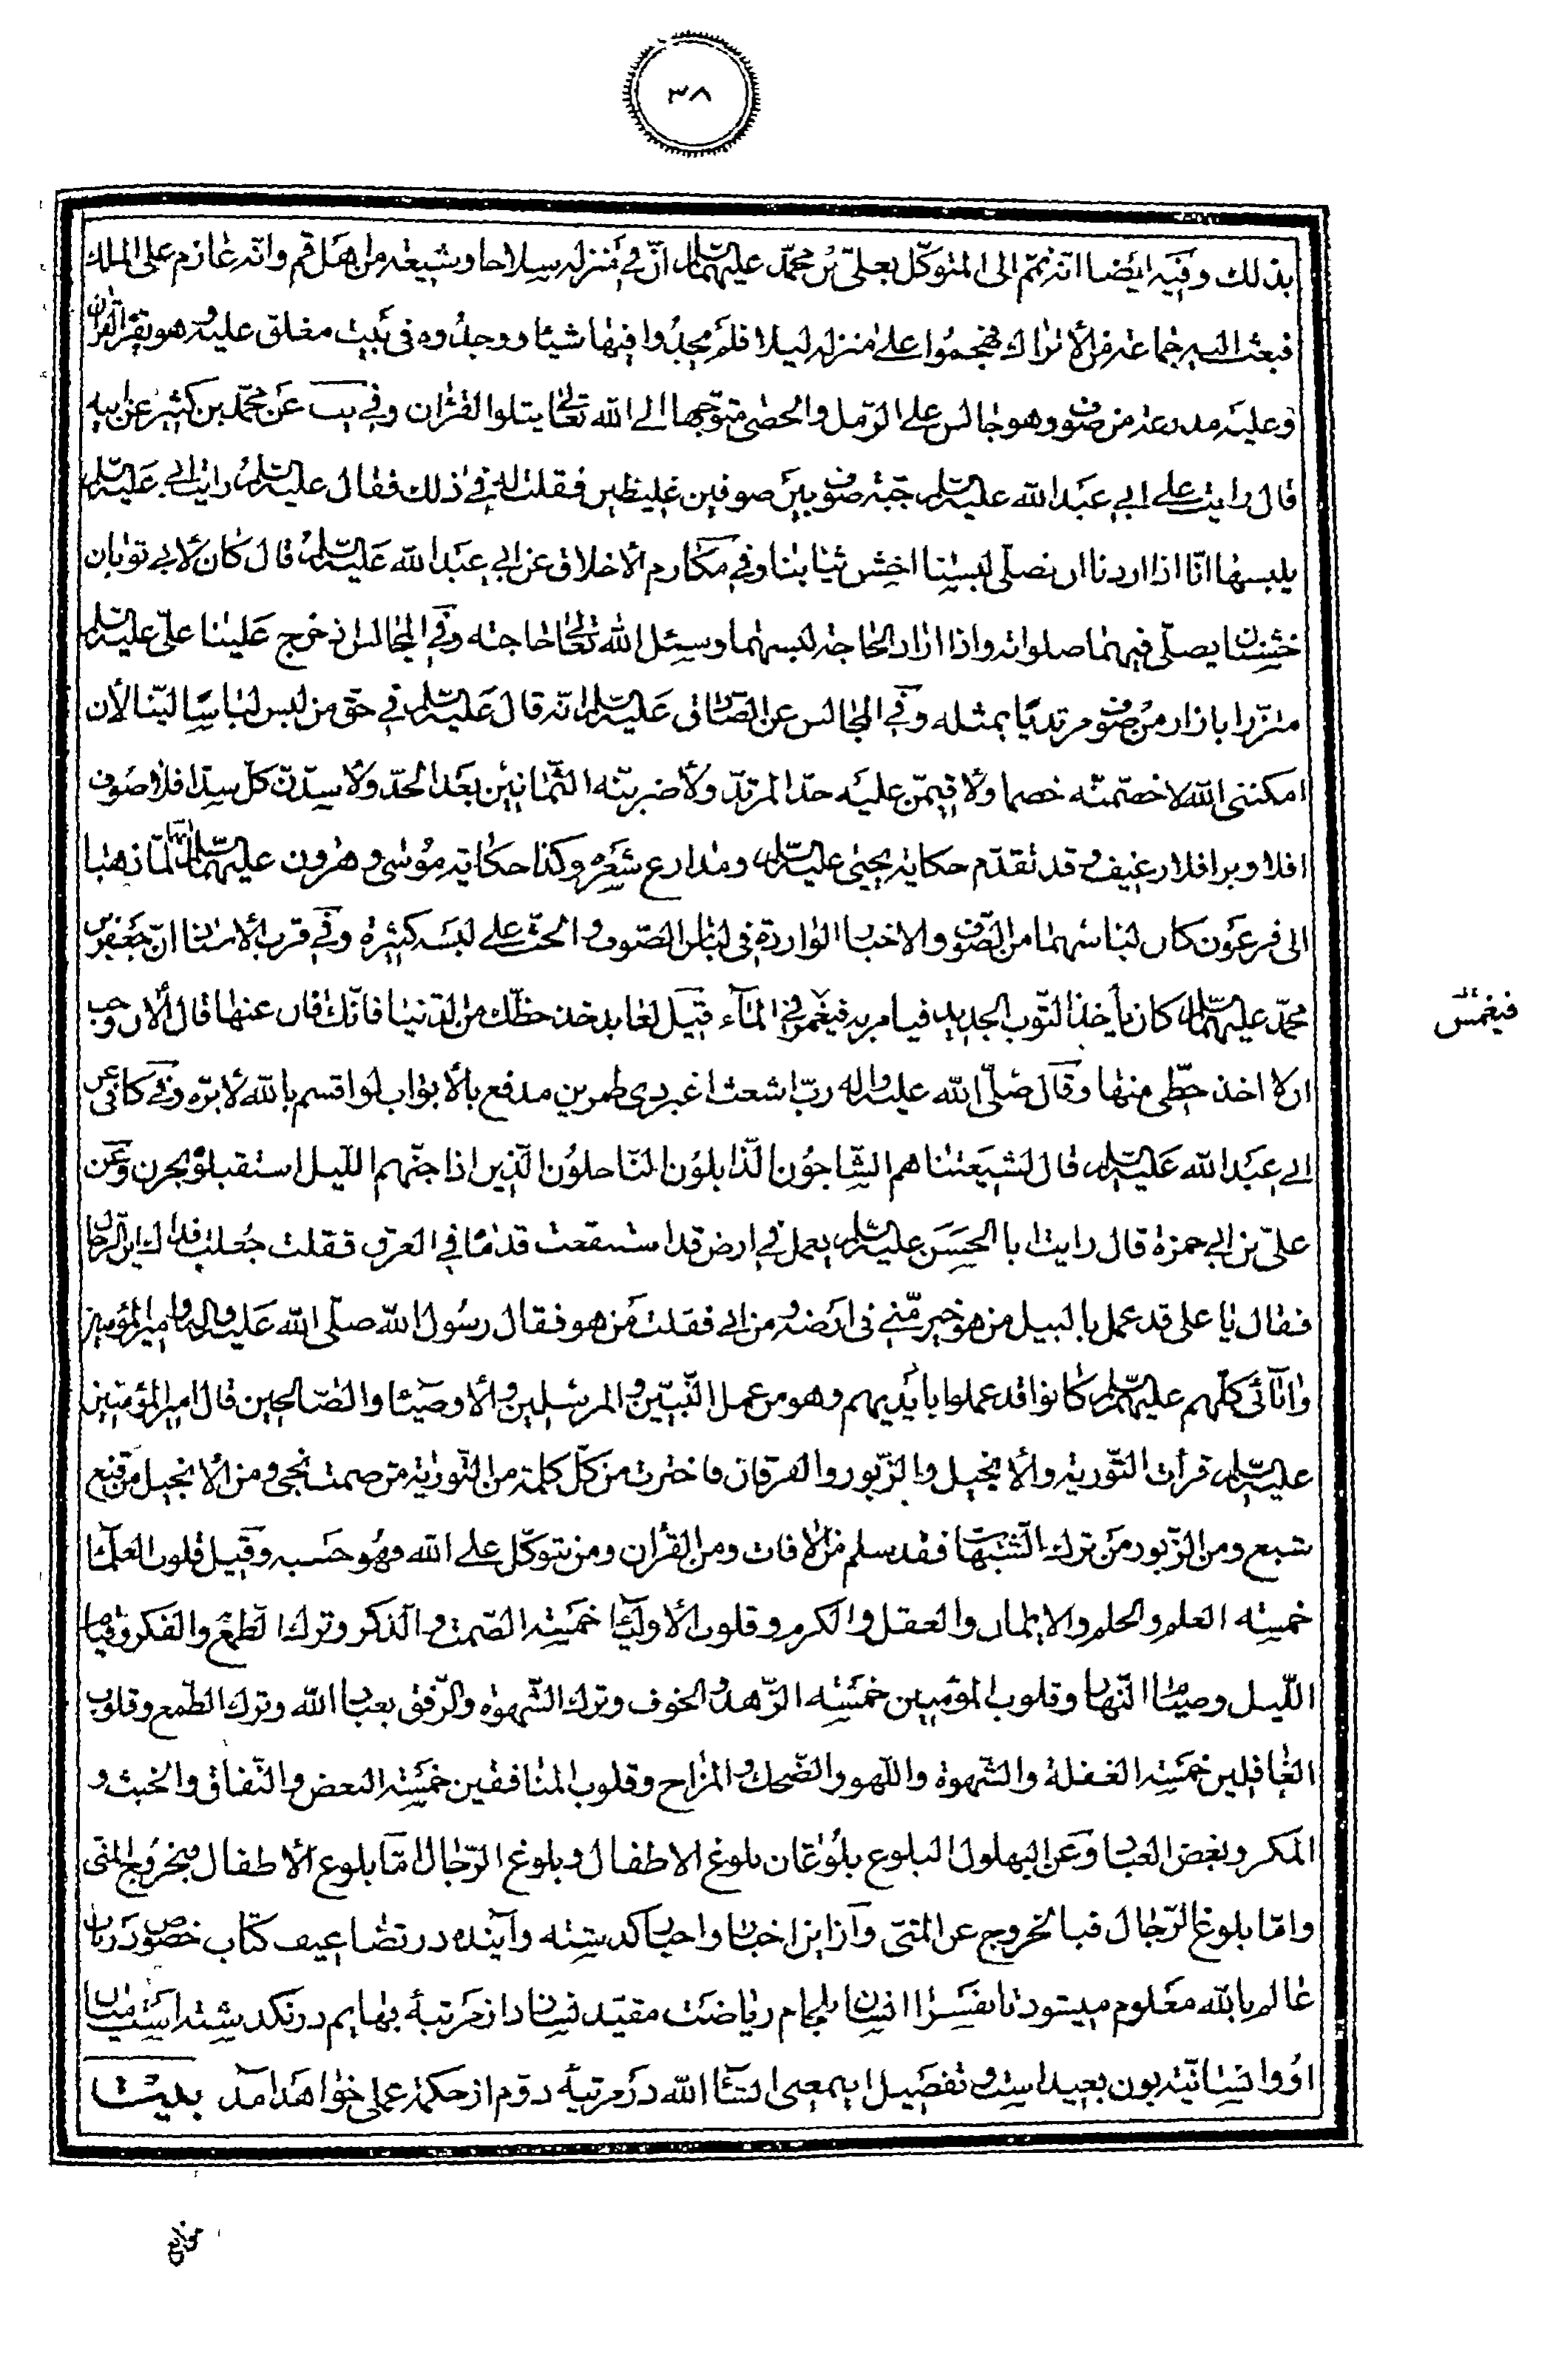 ٣٨
بذلك وفيه ايضا انه نمّ الى المتوكّل بعلىّ بن محمّد عليهما السّلام انّ في منزله سلاحا وشيعة من اهل قم وانّه عازم على الملك
فبعث اليه جماعة من الأتراك فهجموا على منزله ليلا فلم يجدوا فيها شيئا ووجدوه فى بيت مغلق عليه وهو يقرأ القران
وعليه مدرعة من صوف وهو جالس على الرّمل والحصى متوجّها الى الله تعالى يتلوا القران وفي يب عن محمّد بن كثير عن ابيه
قال رايت على ابي عبد الله عليه السّلم جبّة صوف بين صوفين غليظين فقلت له في ذلك فقال عليه السّلم رايت ابي عليه السّلم
يلبسها انّا اذا اردنا ان نصلّى لبسنا اخشن ثيابنا وفي مكارم الأخلاق عن ابي عبد الله عليه السّلم قال كان لأبي ثوبان
خشنان يصلّى فيهما صلواته واذا اراد الحاجة لبسهما وسئل الله تعالى حاجته وفي المجالس خرج علينا علىّ عليه السّلم
متزّرا بازار من صوف مرتديا بمثله وفي المجالس عن الصّادق عليه السّلم انّه قال عليه السّلم في حق من لبس لباسا ليّنا لأن
امكننى الله لاخصمنّه خصما ولأقيمنّ عليه حدّ المرتدّ ولأضربنّه الثّمانين بعد الحدّ ولأسدّنّ كلّ سدّا فلا صوف
افلا وبر افلا رغيف وقد تقدّم حكاية يحيى عليه السّلم ومدارع شعره وكذا حكاية موسى وهرون عليهما السّلام لمّا ذهبا
الى فرعون كان لباسهما من الصّوف والاخبار الواردة فى لباس الصّوف والحث على لبسه كثيرة وفي قرب الأسناد انّ جعفر بن
محمّد عليهما السّلام كان يأخذ الثّوب الجديد فيامر به فيغمر في المآء قيل لعابد خذ حظّك من الدّنيا فانّك فان عنها قال ألان وجب
ان لا اخذ حظّى منها وقال صلّى الله عليه واله ربّ اشعث اغبر ذى طمرين مدفع بالأبواب لو اقسم بالله لابرّه وفي كافى عن
ابي عبد الله عليه السّلم قال لشيعتنا هم الشّاحبون الذّابلون النّاحلون الّذين اذا جنّهم اللّيل استقبلوه بحزن وعن
علىّ بن ابي حمزة قال رايت ابا الحسن عليه السّلم يعمل في ارض قد استنقعت قدماه في العرق فقلت جعلت فداك اين الرجال
فقال يا على قد عمل بالبيل من هو خير منّي فى ارضه ومن ابي فقلت من هو فقال رسول الله صلّى الله عليه واله وامير المؤمنين
وابآئى كلّهم عليهم السّلم كانوا قد عملوا بايديهم وهو من عمل النّبيّين والمرسلين والأوصيآء والصّالحين قال امير المؤمنين
عليه السّلم قرأت التّورية والأنجيل والزّبور والفرقان فاخترت من كلّ كلمة من التّورية من صمت نجى ومن الأنجيل من قنع
شبع ومن الزّبور من ترك الشّبهات فقد سلم من الأفات ومن القرأن ومن يتوكّل على الله فهو حسبه وقيل قلوب العلمآء
خمسة العلم والحلم والايمان والعقل والكرم وقلوب الأوليآء خمسة الصّمت والذّكر وترك الطّمع والفكر وقيام
اللّيل وصيام النّهار وقلوب المؤمنين خمسة الزّهد والخوف وترك الشّهوة والرّفق بعباد الله وترك الطّمع وقلوب
الغافلين خمسة الغفلة والشّهوة واللّهو والضّحك والمزاح وقلوب المنافقين خمسة البعض والنّفاق والخبث و
المكر وبغض العباد وعن البهلول البلوع بلوغان بلوغ الاطفال وبلوغ الرّجال امّا بلوع الأطفال فبخروج المنى
وامّا بلوغ الرّجال فبالخروج عن المنى وازاين اخبار واحباركذشته وآينده در تضاعيف كتاب خصوص در باب
عالم بالله معلوم ميشود تا نفس را انسان بلجام رياضت مقيد نسازد از مرتبه بهايم درنگذشته است ميان
او وانسانيّة بون بعيد است وتفصيل اينمعنى انشآء الله در مرتبه دوّم از حكمة عملى خواهد آمد بديت
فيغمس